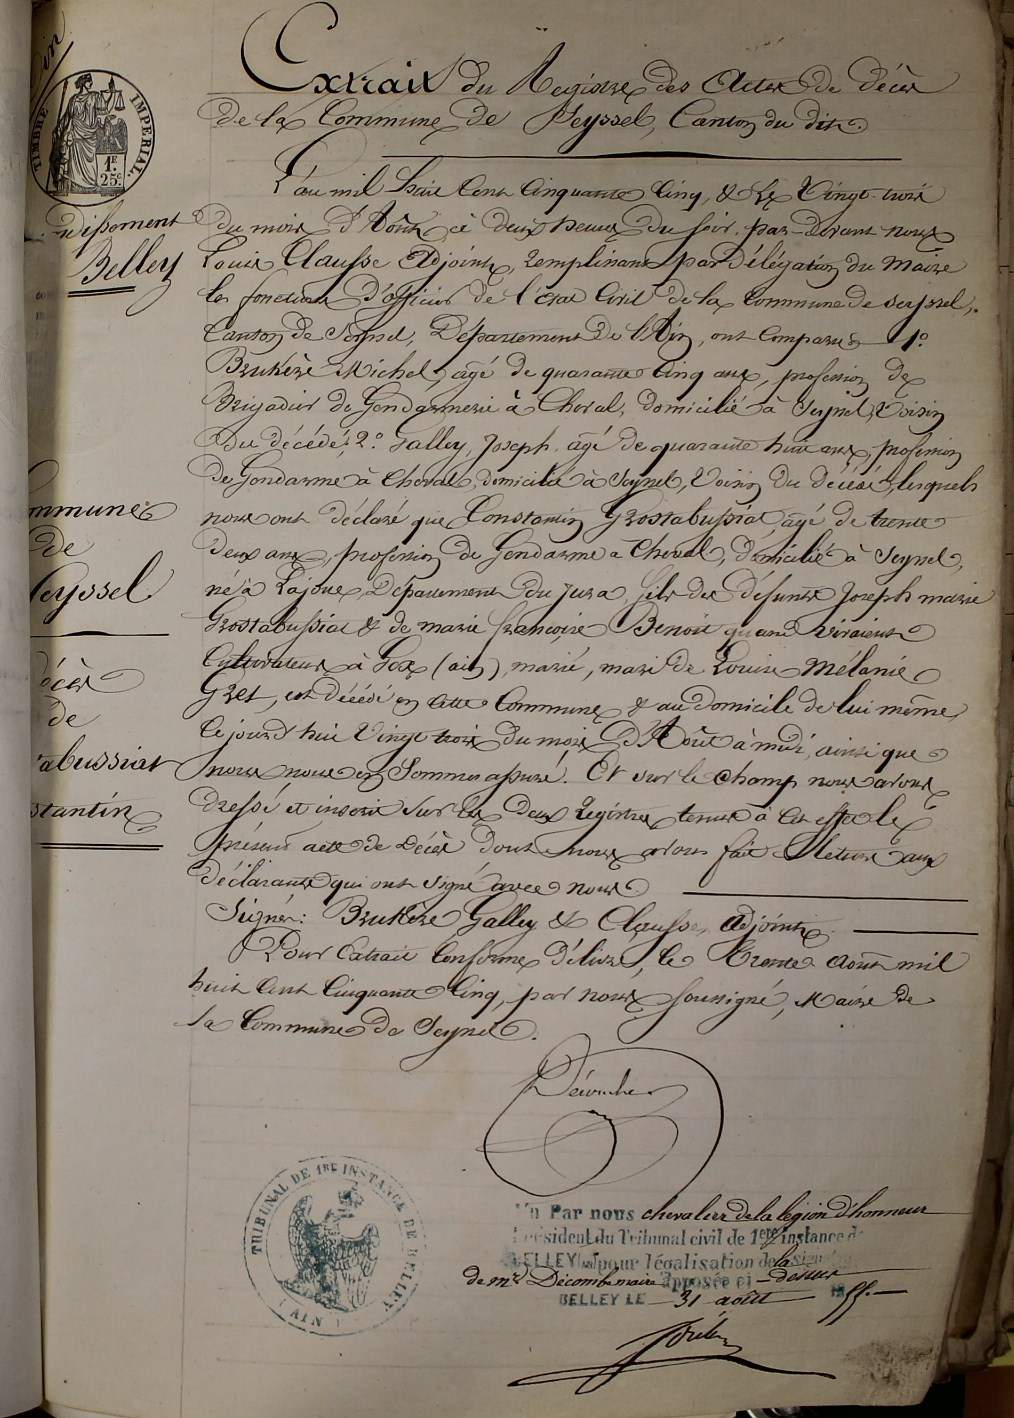 TIMBRE IMPERIAL.
1F 25c
Extrait du Registre des Actes de décès
de la Commune de Seyssel, Canton du dit.
L'an mil huit Cent Cinquante Cinq, & le Vingt-trois
du mois d'Août à deux heures du soir, par-devant nous
Louis Clausse Adjoint, remplissant par délégation du Maire
les fonctions d'officier de l'état Civil de la Commune de Seyssel,
Canton de Seyssel, Département de l'Ain, ont Comparu 1°
Brukère Michel, âgé de quarante Cinq ans, profession de
Brigadier de Gendarmerie à Cheval, domicilié à Seyssel, Voisin
du décédé, 2° Galley, Joseph, âgé de quarante huit ans, profession
de Gendarme à Cheval, domicilié à Seyssel, Voisin du décédé, lesquels
nous ont déclaré que Constantin Grostabussiat âgé de trente
deux ans, profession de Gendarme à Cheval, domicilié à Seyssel,
né à Lajoux, Département du Jura, fils des défunts Joseph marie
Grostabussiat & de marie françoise Benoit quand vivaient
Cultivateurs à Gex (ain), marié, mari de Louise Mélanie
Gret, est décédé en cette Commune & au domicile de lui même,
Cejourd'hui Vingt trois du mois d'Août à midi, ainsi que
nous nous en Sommes assuré. Et sur le champ nous avons
dressé et inscrit sur les deux Registres tenus à Cet effet le
présent acte de décès dont nous avons fait lecture aux
déclarants qui ont signé avec nous.
Signés: Brukère Galley & Clausse, adjoint.
Pour Extrait Conforme délivré, le trente août mil
huit Cent Cinquante Cinq, par nous soussigné, Maire de
la Commune de Seyssel.
Arrondissement
Belley
Commune
de
Seyssel
décès
de
abussiat
stantin
Vu Par nous chevalier de la légion d'honneur
Président du Tribunal civil de 1ere Instance de
BELLEY pour légalisation de la
de Mr Décombe maire apposée ci-dessus
BELLEY LE 31 août 1855.
TRIBUNAL DE 1RE INSTANCE DE BELLEY
(AIN)